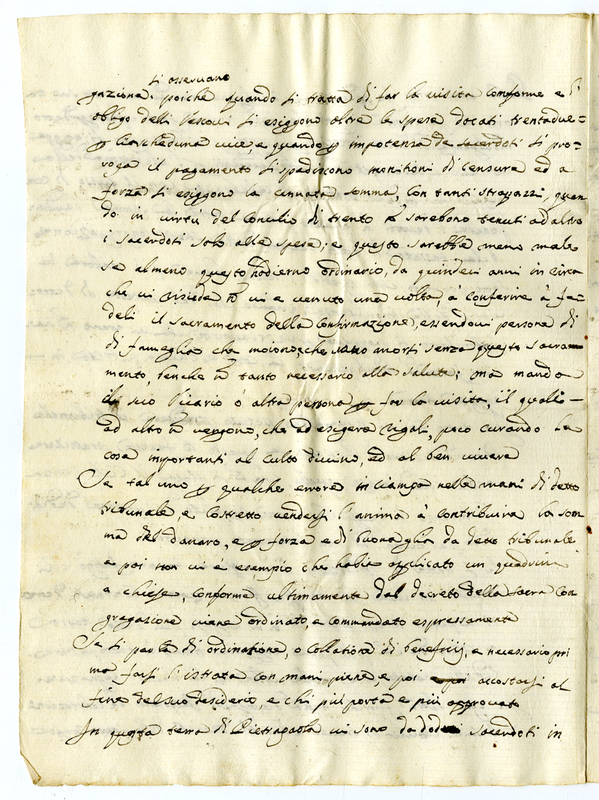 si osservano
gazione. poiche quando si tratta di far la visita conforme è l'
obligo delli Vescovi si esiggono oltre le spese docati trentadue=
p ciascheduna vice, e quando p impotenza de sacerdoti si pro-
roga il pagamento si spediscono monitioni di censure ed a
forza si esiggono la cennata somma, con tanti strapazzi, quan
do in virtù del Concilio di trento nō sarebono tenuti ad altro
i sacerdoti solo alle spese; e questo sarebbe meno male
se almeno questo hodierno ordinario, da quindeci anni in circa
che vi risiede nō vi è venuto una volta, à conferire à fe-
deli il sacramento della Confirmazione, essendovi persone di
di fameglia che moiono, che morti senza questo sacram
mento, benche nō tanto necessario alla salute; ma manda
il suo Vicario ò altra persona p far la visita, il quali
ad altro nō vengono, che ad esigere regali, poco curando le
cose importanti al culto divino, ed al ben vivere
Se tal uno p qualche errore inciampa nelle mani di detto
tribunale è costretto vendersi l'anima à contribuire la som
ma del danaro, e p forza e di buona glia da detto tribunale
e poi non vi è esempio che habia applicato un quadrino
a chiese, conforme ultimamente dal decreto della sacra Con
gregazione viene ordinato, e commandato espressamente
Se si parla di ordinatione, o collatione di beneficij, è necessario pri
ma farsi l'istrata con mani piene, e poi accostarsi al
fine del suo desiderio, e chi più porta è più approvato
In questa terra di Pietrapaola vi sono da sacerdoti in